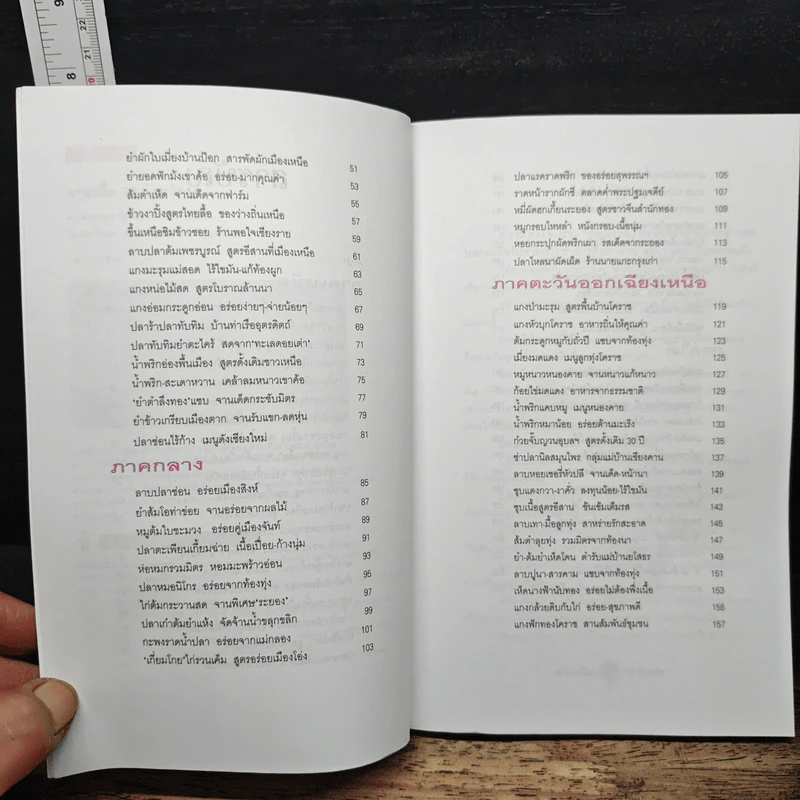 ยำผักใบเมี่ยงบ้านป๊อก สารพัดผักเมืองเหนือ 51
ยำยอดฟักม้งเขาค้อ อร่อย-มากคุณค่า 53
ส้มตำเห็ด จานเด็ดจากฟาร์ม 55
ข้าวงาปิ้งสูตรไทยลื้อ ของว่างถิ่นเหนือ 57
ขึ้นเหนือชิมข้าวซอย ร้านพอใจเชียงราย 59
ลาบปลาต้มเพชรบูรณ์ สูตรอีสานที่เมืองเหนือ 61
แกงมะรุมแม่สอด ไร้ไขมัน-แก้ท้องผูก 63
แกงหน่อไม้สด สูตรโบราณล้านนา 65
แกงอ่อมกระดูกอ่อน อร่อยง่ายๆ-จ่ายน้อยๆ 67
ปลาร้าปลาทับทิม บ้านท่าเรืออุตรดิตถ์ 69
ปลาทับทิมยำตะไคร้ สดจาก'ทะเลดอยเต่า' 71
น้ำพริกอ่องพื้นเมือง สูตรดั้งเดิมชาวเหนือ 73
น้ำพริก-สะเดาหวาน เคล้าลมหนาวเขาค้อ 75
'ยำตำลึงทอง'แซบ จานเด็ดกระชับมิตร 77
ยำข้าวเกรียบเมืองตาก จานรับแขก-ลดหุ่น 79
ปลาช่อนไร้ก้าง เมนูดังเชียงใหม่ 81
ภาคกลาง
ลาบปลาช่อน อร่อยเมืองสิงห์ 85
ยำส้มโอท่าช่อย จานอร่อยจากผลไม้ 87
หมูต้มใบชะมวง อร่อยคู่เมืองจันท์ 89
ปลาตะเพียนเกี้ยมฉ่าย เนื้อเปื่อย-ก้างนุ่ม 91
ห่อหมกรวมมิตร หอมมะพร้าวอ่อน 93
ปลาหมอนิโกร อร่อยจากท้องทุ่ง 95
ไก่ต้มกระวานสด จานพิเศษ'ระยอง' 97
ปลาเก๋าต้มยำแห้ง จัดจ้านน้ำขลุกขลิก 99
กะพงราดน้ำปลา อร่อยจากแม่กลอง 101
'เกี่ยมโกย'ไก่รวนเค็ม สูตรอร่อยเมืองโอ่ง 103
ปลาแรดราดพริก ของอร่อยสุพรรณฯ 105
ราดหน้ารากผักชี ตลาดค่ำพระปฐมเจดีย์ 107
หมี่ผัดฮกเกี้ยนระยอง สูตรชาวจีนสำนักทอง 109
หมูกรอบไหหลำ หนังกรอบ-เนื้อนุ่ม 111
หอยกระปุกผัดพริกเผา รสเด็ดจากระยอง 113
ปลาไหลนาผัดเผ็ด ร้านนายแกะกรุงเก่า 115
ภาคตะวันออกเฉียงเหนือ
แกงป่ามะรุม สูตรพื้นบ้านโคราช 119
แกงหัวบุกโคราช อาหารถิ่นให้คุณค่า 121
ต้มกระดูกหมูกับถั่วปี แซบจากท้องทุ่ง 123
เมี่ยงมดแดง เมนูลูกทุ่งโคราช 125
หมูหนาวหนองคาย จานหนาวแก้หนาว 127
ก้อยไข่มดแดง อาหารจากธรรมชาติ 129
น้ำพริกแคบหมู เมนูหนองคาย 131
น้ำพริกหมาน้อย อร่อยต้านมะเร็ง 133
ก๋วยจั๊บญวนอุบลฯ สูตรดั้งเดิม 30 ปี 135
ช่าปลานิลสมุนไพร กลุ่มแม่บ้านเชียงคาน 137
ลาบหอยเชอรี่หัวปลี จานเด็ด-หน้านา 139
ซุบแตงกวา-งาคั่ว ลงทุนน้อย-ไร้ไขมัน 141
ซุบเนื้อสูตรอีสาน ข้นเข้มเต็มรส 143
ลาบเทา-มื้อลูกทุ่ง สาหร่ายรักสะอาด 145
ส้มตำลุยทุ่ง รวมมิตรจากท้องนา 147
ยำ-ต้มยำเห็ดโคน ตำรับแม่บ้านยโสธร 149
ลาบปูนา-สารคาม แซบจากท้องทุ่ง 151
เห็ดนางฟ้านับทอง อร่อยไม่ต้องพึ่งเนื้อ 153
แกงกล้วยดิบกับไก่ อร่อย-สุขภาพดี 155
แกงฟักทองโคราช สานสัมพันธ์ชุมชน 157